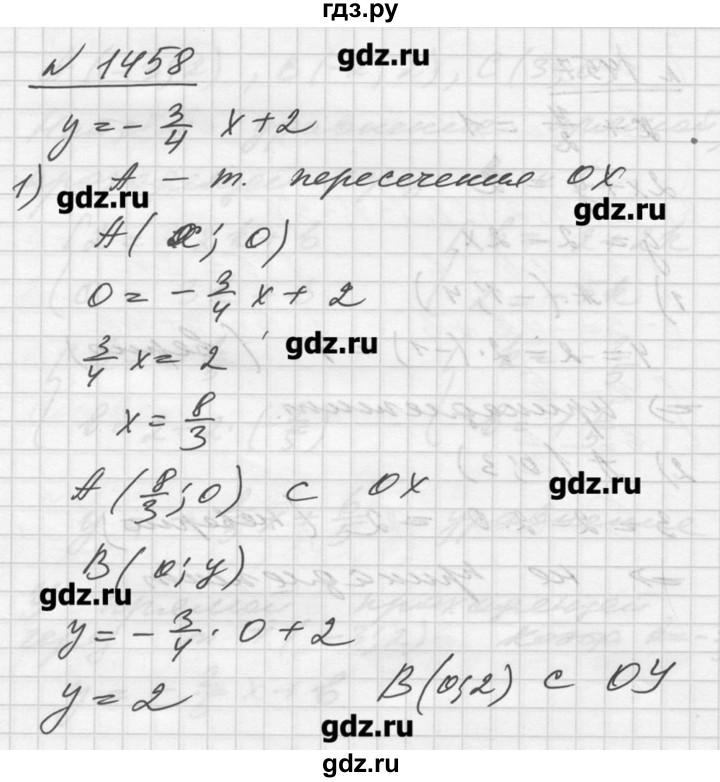 гдз.ру
№ 1458
gdz.ru
y = - 3/4 x + 2
1) A – т. пересечения OX
gdz.ru
gdz.ru
A(x; 0)
0 = - 3/4 x + 2
gdz.ru
3/4 x = 2
x = 8/3
A(8/3; 0) с OX
gdz.ru
B(0; y)
gdz.ru
y = - 3/4 · 0 + 2
y = 2
B(0;2) с OY
gdz.ru
gdz.ru